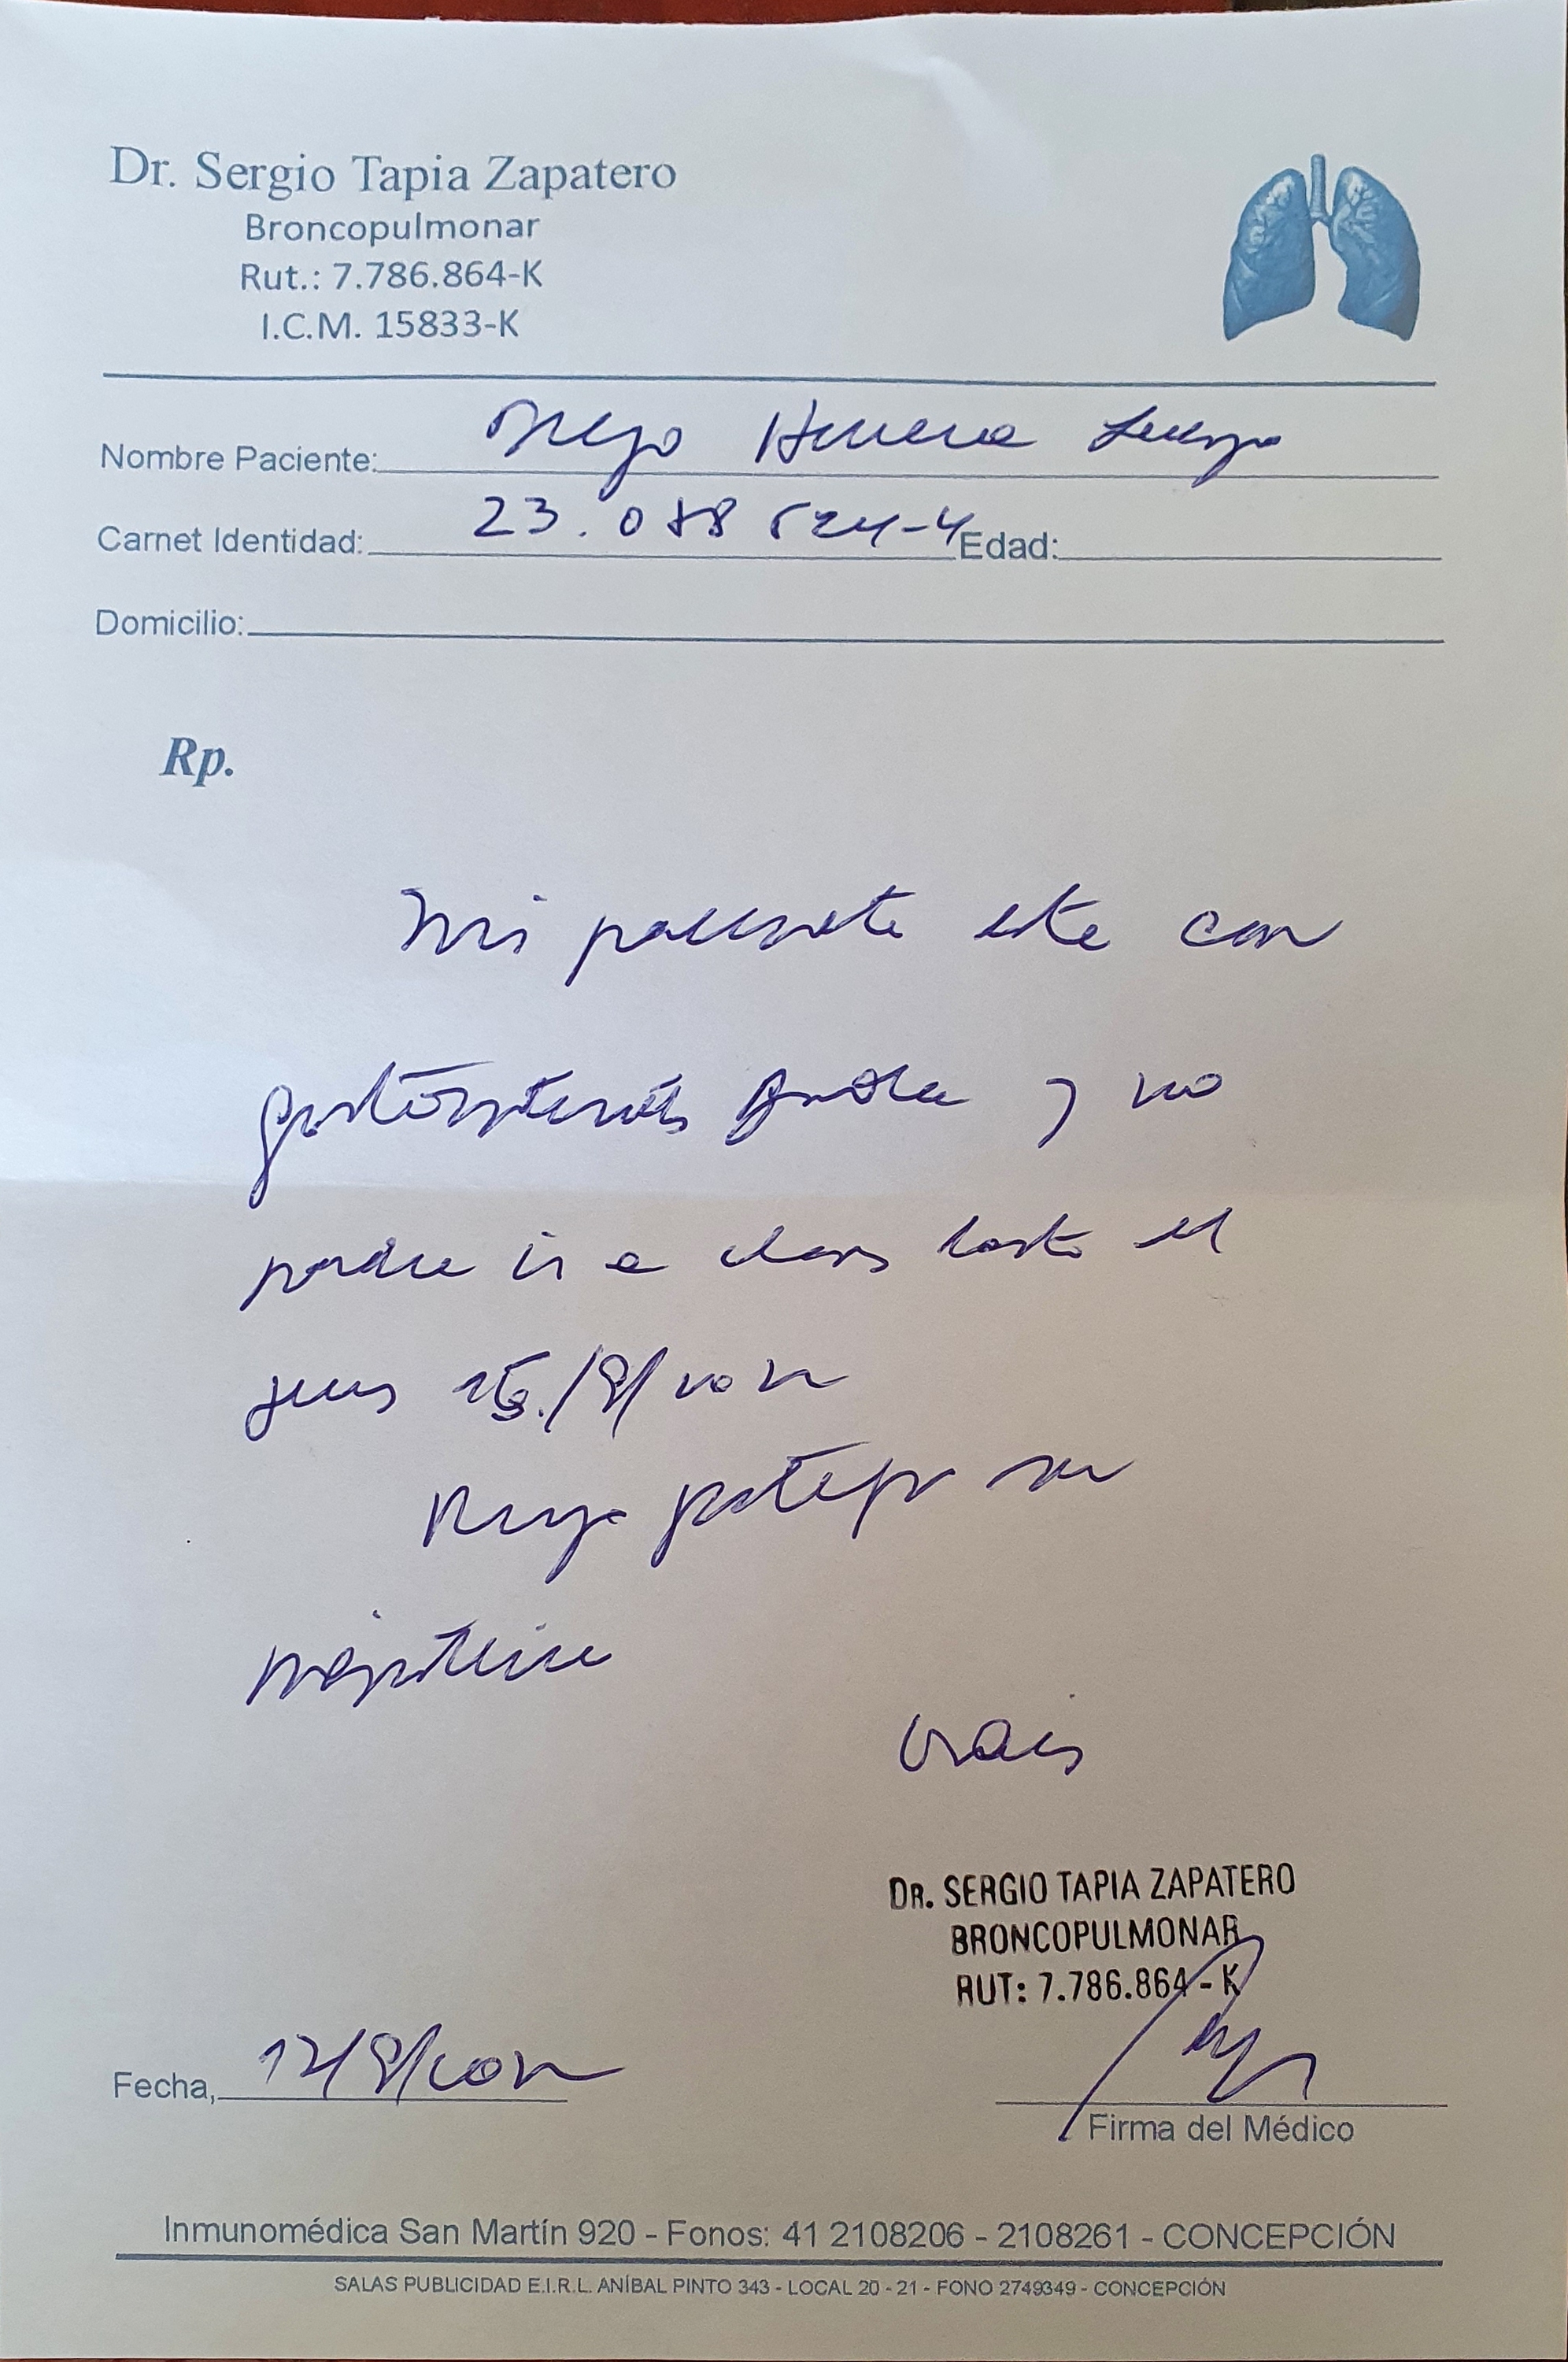 Dr. Sergio Tapia Zapatero
Broncopulmonar
Rut.: 7.786.864-K
I.C.M. 15833-K
Nombre Paciente: Diego Herrera
Carnet Identidad: 23.088 524-4 Edad:
Domicilio:
Rp.
Mi paciente esta con
gastroenteritis aguda y no
podra ir a clases hasta el
jueves 15/8/2024
Ruego proteger su
inasistencia
Gracias
DR. SERGIO TAPIA ZAPATERO
BRONCOPULMONAR
RUT: 7.786.864-K
Fecha, 12/8/2024
Firma del Médico
Inmunomédica San Martín 920 - Fonos: 41 2108206 - 2108261 - CONCEPCIÓN
SALAS PUBLICIDAD E.I.R.L. ANÍBAL PINTO 343 - LOCAL 20 - 21 - FONO 2749349 - CONCEPCIÓN